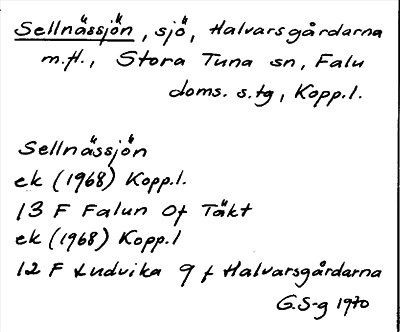 Sellnässjön, sjö, Halvarsgårdarna
m.fl., Stora Tuna sn, Falu
doms. s.tg, Kopp.l.
Sellnässjön
ek (1968) Kopp.l.
13 F Falun 0f Täkt
ek (1968) Kopp.l
12 F Ludvika 9 f Halvarsgårdarna
G.S-g 1970